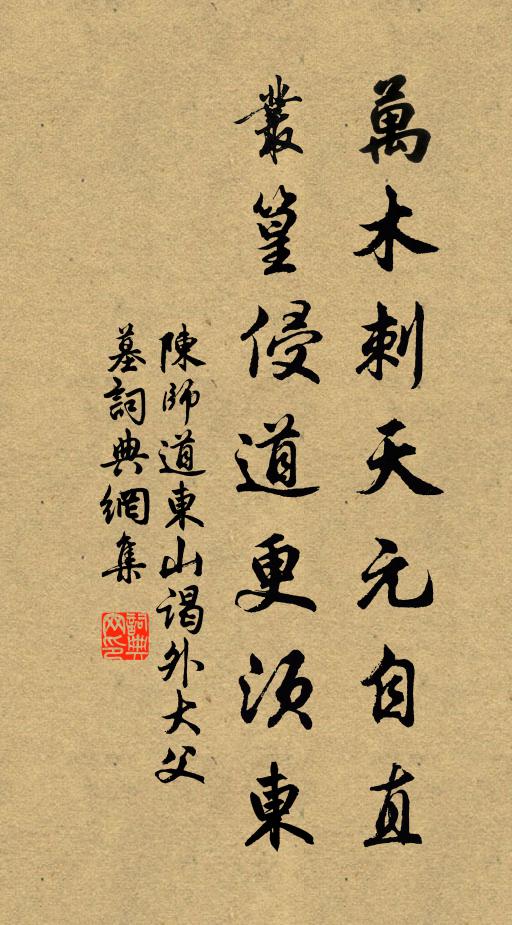 萬木刺天元自直
叢篁侵道更須東
陳師道東山謁外大父
墓詞典網集
詞典網印